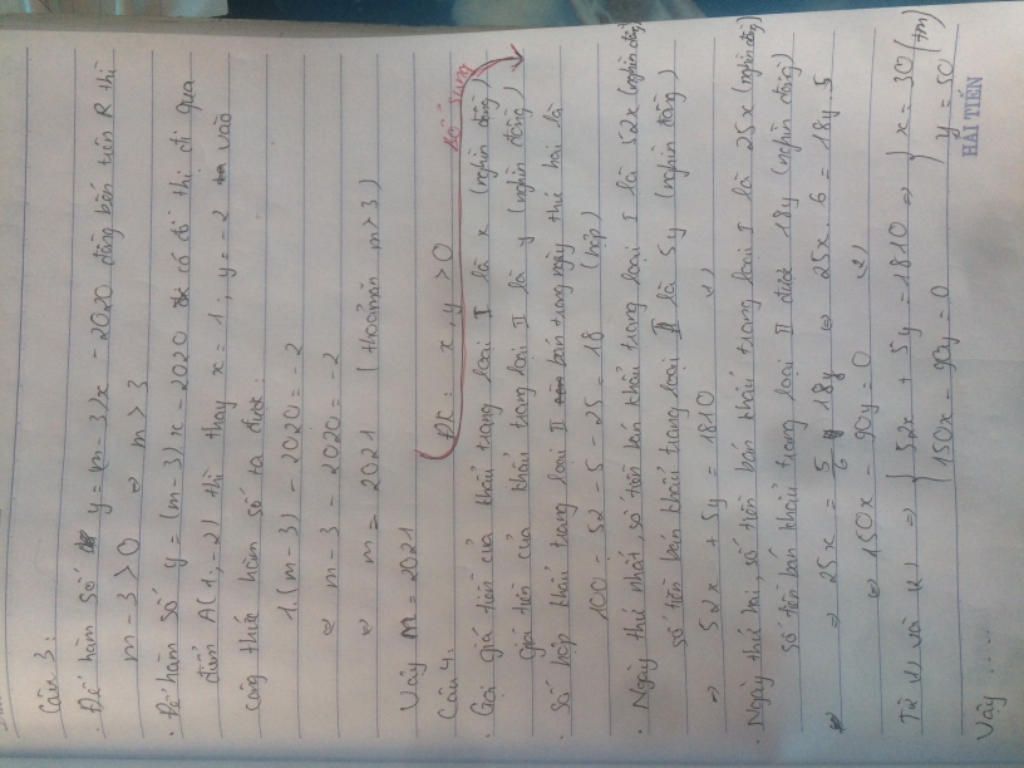 Câu 3:
. Để hàm số y = (m-3)x - 2020 đồng biến trên R thì
m - 3 > 0 ⇔ m > 3
. Để hàm số y = (m-3)x - 2020 có đồ thị đi qua
điểm A(1;-2) thì thay x = 1; y = -2 vào
công thức hàm số ta được:
1.(m-3) - 2020 = -2
⇔ m - 3 - 2020 = -2
⇔ m = 2021 (thoả mãn m > 3)
Vậy m = 2021
Câu 4: ĐK: x, y > 0 bổ sung
. Gọi giá tiền của khẩu trang loại I là x (nghìn đồng)
giá tiền của khẩu trang loại II là y (nghìn đồng)
. Số hộp khẩu trang loại II bán trong ngày thứ hai là
100 - 52 - 5 - 25 = 18 (hộp)
. Ngày thứ nhất, số tiền bán khẩu trang loại I là 52x (nghìn đồng)
số tiền bán khẩu trang loại II là 5y (nghìn đồng)
⇒ 52x + 5y = 1810 (1)
. Ngày thứ hai, số tiền bán khẩu trang loại I là 25x (nghìn đồng)
số tiền bán khẩu trang loại II được 18y (nghìn đồng)
⇒ 25x = 5/6 18y ⇔ 25x.6 = 18y.5
⇔ 150x - 90y = 0 (2)
Từ (1) và (2) ⇒ { 52x + 5y = 1810 ⇒ { x = 30 (tm)
{ 150x - 90y = 0 { y = 50
Vậy .....
HẢI TIẾN